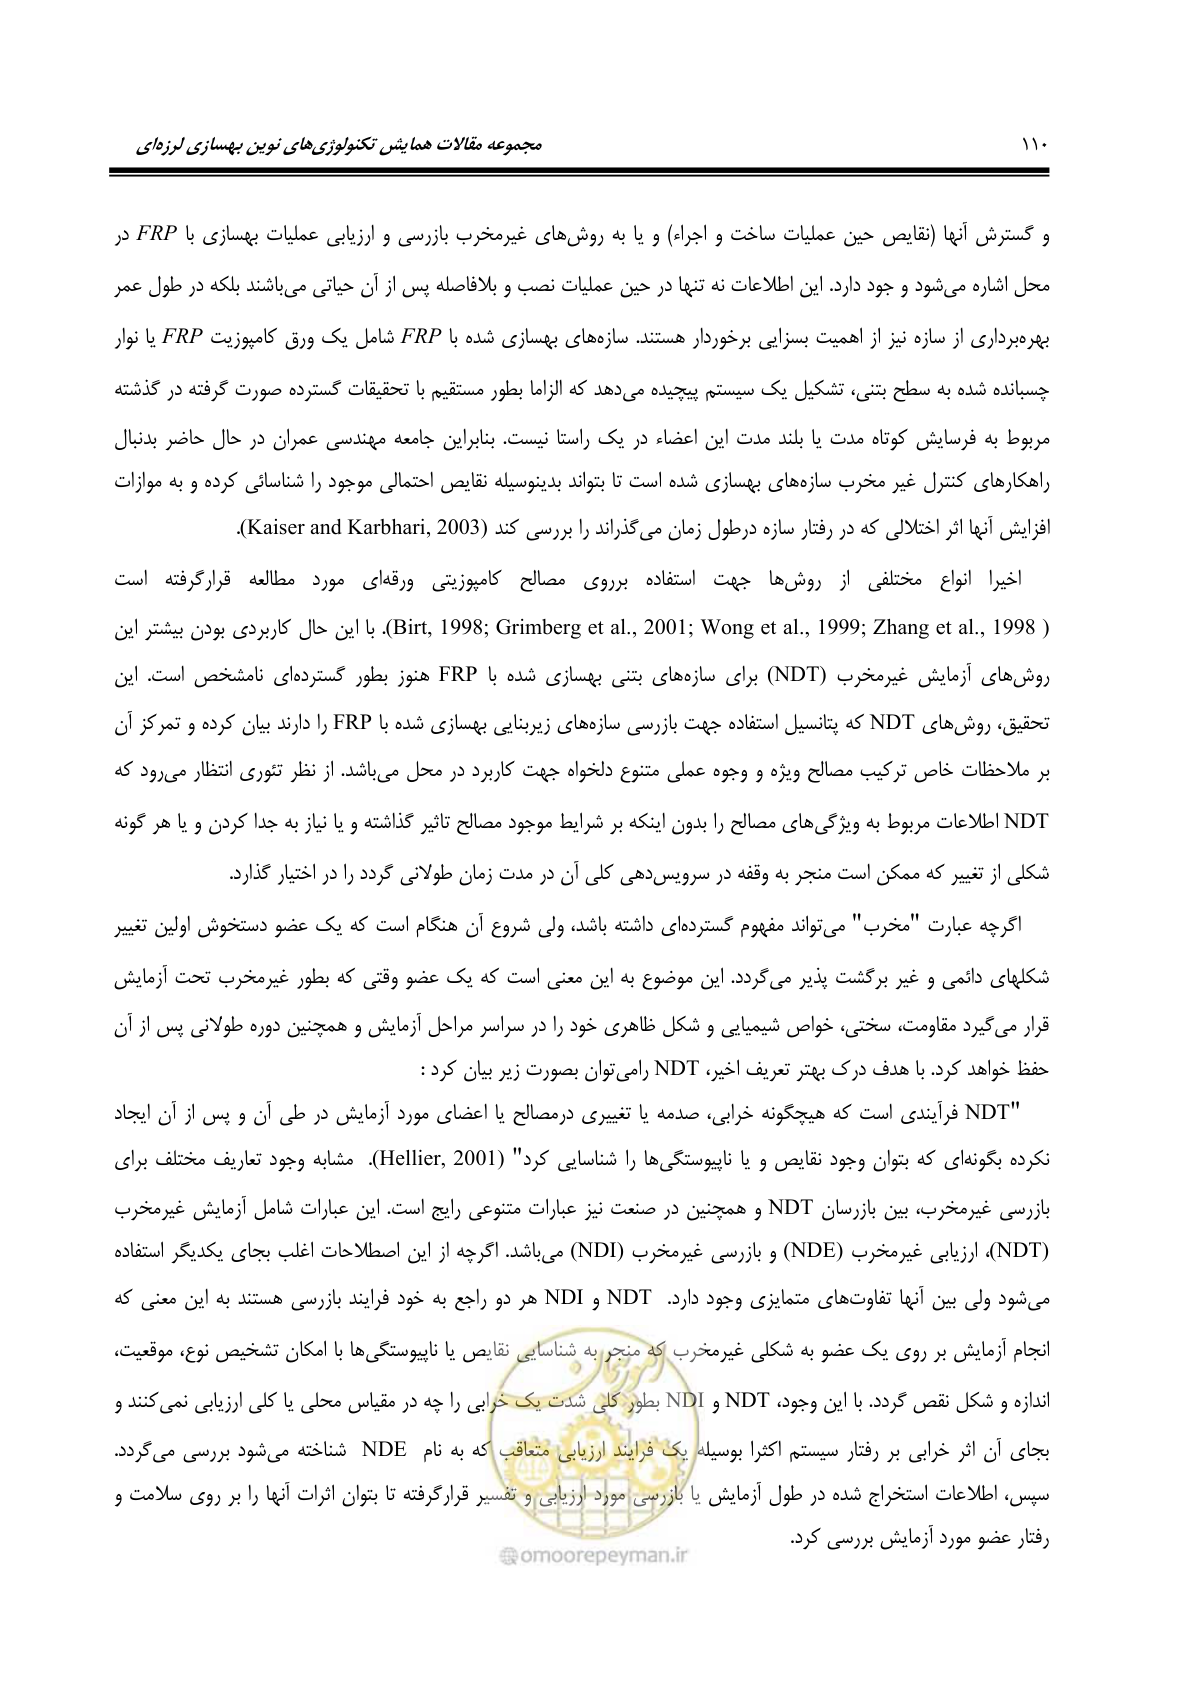 ۱۱۰ مجموعه مقالات همایش تکنولوژی‌های نوین بهسازی لرزه‌ای
و گسترش آنها (نقایص حین عملیات ساخت و اجراء) و یا به روش‌های غیرمخرب بازرسی و ارزیابی عملیات بهسازی با FRP در
محل اشاره می‌شود و جود دارد. این اطلاعات نه تنها در حین عملیات نصب و بلافاصله پس از آن حیاتی می‌باشند بلکه در طول عمر
بهره‌برداری از سازه نیز از اهمیت بسزایی برخوردار هستند. سازه‌های بهسازی شده با FRP شامل یک ورق کامپوزیت FRP یا نوار
چسبانده شده به سطح بتنی، تشکیل یک سیستم پیچیده می‌دهد که الزاما بطور مستقیم با تحقیقات گسترده صورت گرفته در گذشته
مربوط به فرسایش کوتاه مدت یا بلند مدت این اعضاء در یک راستا نیست. بنابراین جامعه مهندسی عمران در حال حاضر بدنبال
راهکارهای کنترل غیر مخرب سازه‌های بهسازی شده است تا بتواند بدینوسیله نقایص احتمالی موجود را شناسائی کرده و به موازات
افزایش آنها اثر اختلالی که در رفتار سازه درطول زمان می‌گذراند را بررسی کند (Kaiser and Karbhari, 2003).
اخیرا انواع مختلفی از روش‌ها جهت استفاده برروی مصالح کامپوزیتی ورقه‌ای مورد مطالعه قرارگرفته است
( Birt, 1998; Grimberg et al., 2001; Wong et al., 1999; Zhang et al., 1998). با این حال کاربردی بودن بیشتر این
روش‌های آزمایش غیرمخرب (NDT) برای سازه‌های بتنی بهسازی شده با FRP هنوز بطور گسترده‌ای نامشخص است. این
تحقیق، روش‌های NDT که پتانسیل استفاده جهت بازرسی سازه‌های زیربنایی بهسازی شده با FRP را دارند بیان کرده و تمرکز آن
بر ملاحظات خاص ترکیب مصالح ویژه و وجوه عملی متنوع دلخواه جهت کاربرد در محل می‌باشد. از نظر تئوری انتظار می‌رود که
NDT اطلاعات مربوط به ویژگی‌های مصالح را بدون اینکه بر شرایط موجود مصالح تاثیر گذاشته و یا نیاز به جدا کردن و یا هر گونه
شکلی از تغییر که ممکن است منجر به وقفه در سرویس‌دهی کلی آن در مدت زمان طولانی گردد را در اختیار گذارد.
اگرچه عبارت "مخرب" می‌تواند مفهوم گسترده‌ای داشته باشد، ولی شروع آن هنگام است که یک عضو دستخوش اولین تغییر
شکلهای دائمی و غیر برگشت پذیر می‌گردد. این موضوع به این معنی است که یک عضو وقتی که بطور غیرمخرب تحت آزمایش
قرار می‌گیرد مقاومت، سختی، خواص شیمیایی و شکل ظاهری خود را در سراسر مراحل آزمایش و همچنین دوره طولانی پس از آن
حفظ خواهد کرد. با هدف درک بهتر تعریف اخیر، NDT رامی‌توان بصورت زیر بیان کرد :
"NDT فرآیندی است که هیچگونه خرابی، صدمه یا تغییری درمصالح یا اعضای مورد آزمایش در طی آن و پس از آن ایجاد
نکرده بگونه‌ای که بتوان وجود نقایص و یا ناپیوستگی‌ها را شناسایی کرد" (Hellier, 2001). مشابه وجود تعاریف مختلف برای
بازرسی غیرمخرب، بین بازرسان NDT و همچنین در صنعت نیز عبارات متنوعی رایج است. این عبارات شامل آزمایش غیرمخرب
(NDT)، ارزیابی غیرمخرب (NDE) و بازرسی غیرمخرب (NDI) می‌باشد. اگرچه از این اصطلاحات اغلب بجای یکدیگر استفاده
می‌شود ولی بین آنها تفاوت‌های متمایزی وجود دارد. NDT و NDI هر دو راجع به خود فرایند بازرسی هستند به این معنی که
انجام آزمایش بر روی یک عضو به شکلی غیرمخرب که منجر به شناسایی نقایص یا ناپیوستگی‌ها با امکان تشخیص نوع، موقعیت،
اندازه و شکل نقص گردد. با این وجود، NDT و NDI بطور کلی شدت یک خرابی را چه در مقیاس محلی یا کلی ارزیابی نمی‌کنند و
بجای آن اثر خرابی بر رفتار سیستم اکثرا بوسیله یک فرایند ارزیابی متعاقب که به نام NDE شناخته می‌شود بررسی می‌گردد.
سپس، اطلاعات استخراج شده در طول آزمایش یا بازرسی مورد ارزیابی و تفسیر قرارگرفته تا بتوان اثرات آنها را بر روی سلامت و
رفتار عضو مورد آزمایش بررسی کرد.
امور پیمان
@omoorepeyman.ir